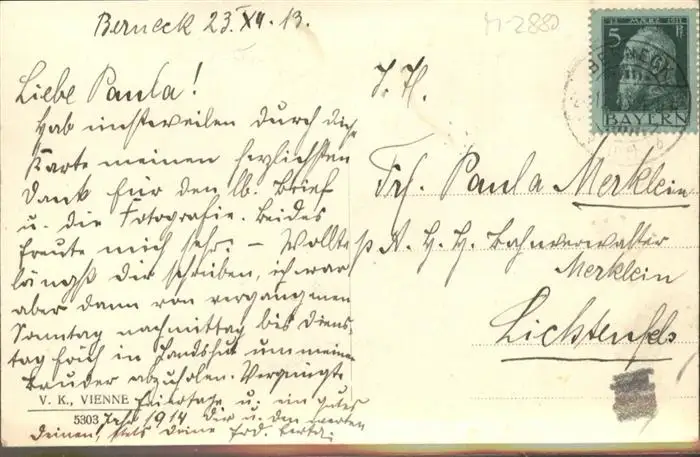 Berneck 23. XII. 13.
M-2880
Liebe Paula!
Hab einstweilen durch diese
Karte meinen herzlichsten
Dank für den lb. Brief
u. die Fotografie. Beides
freute mich sehr. – Wollte
längst dir schreiben, ich war
aber dann von vergangenen
Sonntag nachmittag bis Diens-
tag früh in Landshut um meinen
Bruder abzuholen. Vergnügte
Feiertage u. ein gutes
Jahr 1914 dir u. den werten
Deinen! stets deine
V. K., VIENNE
5303
12. MÄRZ 1911
5 Pf
BAYERN
BERNECK
Frl. Paula Merklein
p. A. H. H. Bahnverwalter
Merklein
Lichtenfels